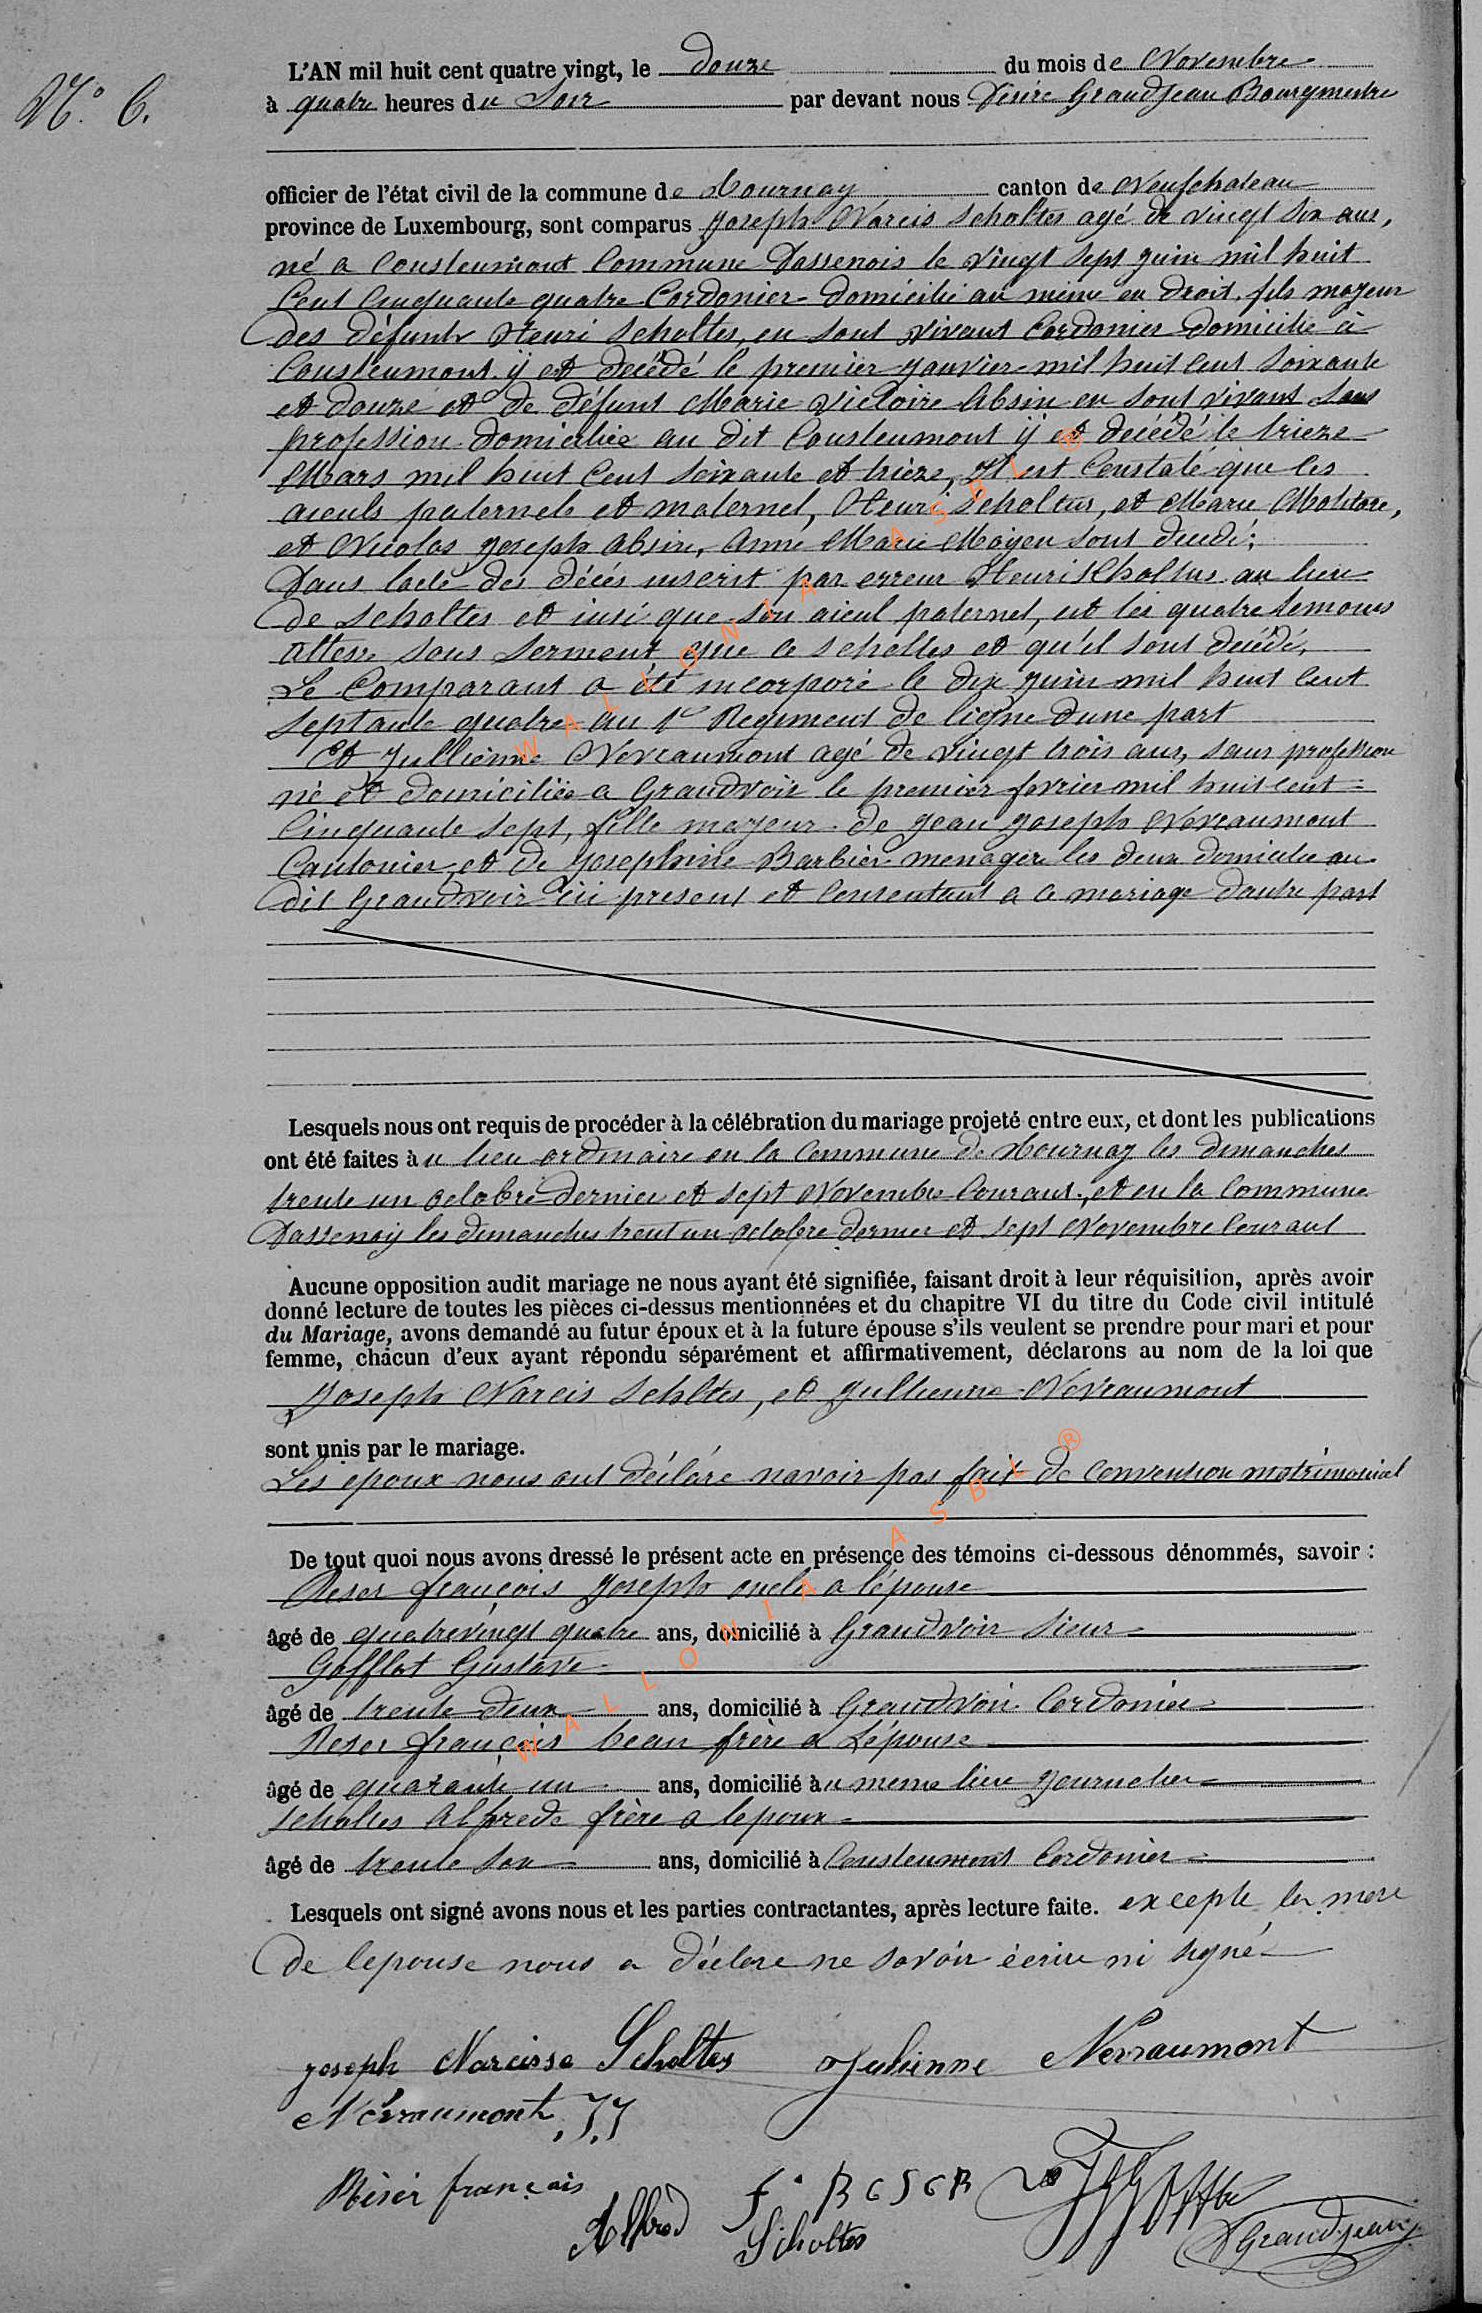 N.° 6.
L'AN mil huit cent quatre vingt, le douze du mois de Novembre
à quatre heures du Soir par devant nous Désiré Grandjean Bourgmestre
officier de l'état civil de la commune de Tournay canton de Neufchateau
province de Luxembourg, sont comparus Joseph Narcis Scholtes agé de vingt six ans,
né a Cousteumont Commune Dassenois le vingt sept juin mil huit
Cent Cinquante quatre Cordonier domicilié au même en droit, fils majeur
des défunts Henri Scholtes, en sont vivant Cordonier domicilié à
Cousteumont ÿ et decédé le premier janvier mil huit cent soixante
et douze et de défunt Marie Victoire Absin en sont vivant sans
profession domiciliée au dit Cousteumont ÿ et decédé le trieze
Mars mil huit Cent soixante et trieze, Il est Constaté que les
aieuls paternels et maternel, Henri Scholtus, et Marie Molitore,
et Nicolas Joseph Absin, Anne Marie Moyen sont decedé;
Dans lacte des décés inscrit par erreur Henri Scholtus au lieu
de Scholtes et insi que son aieul paternel, et les quatre temoins
atteste sous serment que ce scholtes et qu'il sont décédé,
Le Comparant a été incorporé le dix juin mil huit cent
septante quatre au 1e Regiment de ligne dune part
Et Jullienne Nevraumont agé de vingt trois ans, sans profession
né et domiciliée a Grandvoir le premier fevrier mil huit cent
Cinquante sept, fille majeur de Jean Joseph Nevraumont
Cantonier, et de Josephine Barbier menagere les deux domicilie au
dit Grandvoir ici present et Consentant a ce mariage dautre part
Lesquels nous ont requis de procéder à la célébration du mariage projeté entre eux, et dont les publications
ont été faites au lieu ordinaire en la Commune de Tournay les dimanches
trente un octobre dernier et sept Novembre Courant, et en la Commune
Dassenoy les dimanches trent un octobre dernier et sept Novembre Courant
Aucune opposition audit mariage ne nous ayant été signifiée, faisant droit à leur réquisition, après avoir
donné lecture de toutes les pièces ci-dessus mentionnées et du chapitre VI du titre du Code civil intitulé
du Mariage, avons demandé au futur époux et à la future épouse s'ils veulent se prendre pour mari et pour
femme, chacun d'eux ayant répondu séparément et affirmativement, déclarons au nom de la loi que
Joseph Narcis Schltes, et Jullienne Nevraumont
sont unis par le mariage.
Les époux nous ont déclaré navoir pas fait de Convention matrimonial
De tout quoi nous avons dressé le présent acte en présence des témoins ci-dessous dénommés, savoir :
Reser françois Joseph oncle a lépouse
âgé de quatrevingt quatre ans, domicilié à Grandvoir sieur
Gofflot Gustave
âgé de trente deux ans, domicilié à Grandvoir Cordonier
Reser français beau frère a l'épouse
âgé de quarante un ans, domicilié au meme lieu journelier
Scholtes Alfrede frère a lepoux
âgé de trente six ans, domicilié à Cousteumont Cordonier
Lesquels ont signé avons nous et les parties contractantes, après lecture faite. excepte la mere
de lepouse nous a déclaré ne savoir écrire ni signé
Joseph Narcisse Scholtes Julienne Nevraumont
Névraumont J.J
Réser français f. RESER
Alfred Scholtes
D Grandjean
WALLONIA ASBL ®
WALLONIA ASBL ®